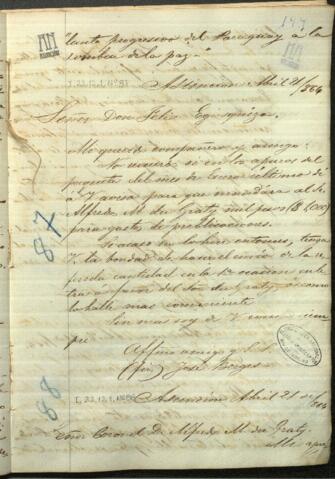 147
tanto progresso del Paraguay à la
sombra de la paz"
I-22,12,1, Nº 87
Asuncion Abril 21/864
Señor Don Felix Eguzquiza.
Mi querido compañero y amigo:
No recuerdo si en los apuros del
paquete del mes de Enero ultimo dé
a V aviso para que mandára al Sr
Alfredo M. du Graty mil pesos ($ 1,000)
para gastos de publicaciones.
Si acaso no lo hice entonces, tenga
V la bondad de hacer el envio de la re
ferida cantidad en la 1ª ocasion en le
tra á favor del Señor du Graty, o como
lo halle mas conveniente.
Sin mas soy de V como siem
pre
Affmo amigo y S. S.
(fdo) José Berges
87
88
I-22,12,1, Nº 88
Asuncion Abril 21 de/864
Señor Coronel D. Alfredo M. du Graty.